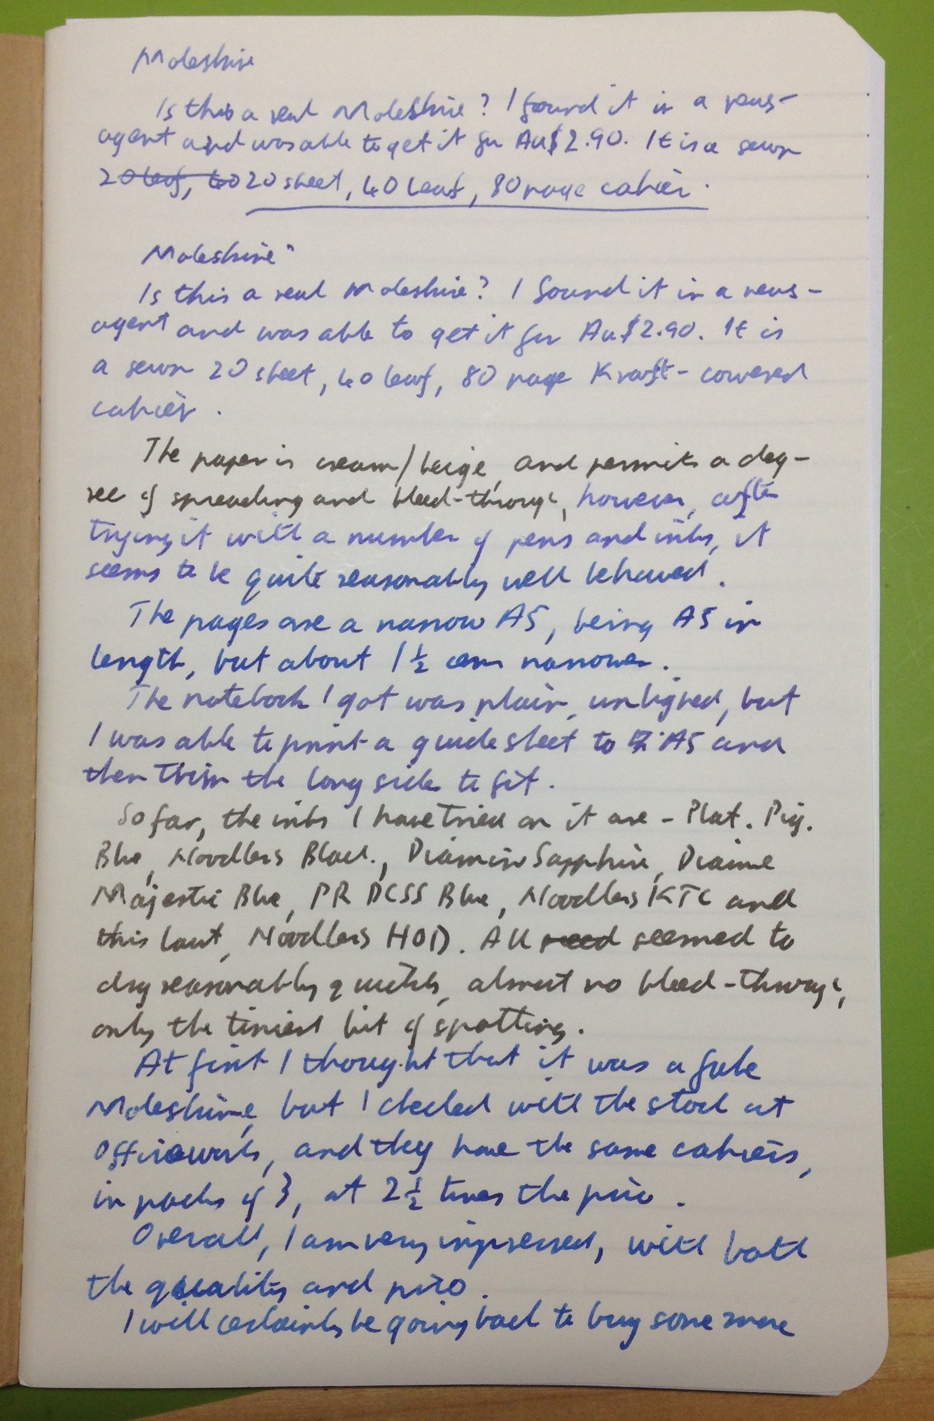 Moleskine
Is this a real Moleskine? I found it in a news-
agent and was able to get it for Au$2.90. It is a sewn
20 leaf, 40 20 sheet, 40 leaf, 80 page cahier.
Moleskine
Is this a real Moleskine? I found it in a news-
agent and was able to get it for Au$2.90. It is
a sewn 20 sheet, 40 leaf, 80 page Kraft-covered
cahier.
The paper is cream/beige, and permits a deg-
ree of spreading and bleed-through, however, after
trying it with a number of pens and inks, it
seems to be quite reasonably well behaved.
The pages are a narrow A5, being A5 in
length, but about 1½ cm narrower.
The notebook I got was plain, unligned, but
I was able to print a guide sheet to A5 and
then trim the long side to fit.
So far, the inks I have tried on it are - Plat. Pig.
Blue, Noodlers Black, Diamine Sapphire, Diamine
Majestic Blue, PR DCSS Blue, Noodlers KTC and
this last, Noodlers HOD. All seemed to
dry reasonably quickly, almost no bleed-through,
only the tiniest bit of spotting.
At first I thought that it was a fake
Moleskine, but I checked with the stock at
Officeworks, and they have the same cahiers,
in packs of 3, at 2½ times the price.
Overall, I am very impressed, with both
the quality and price.
I will certainly be going back to buy some more